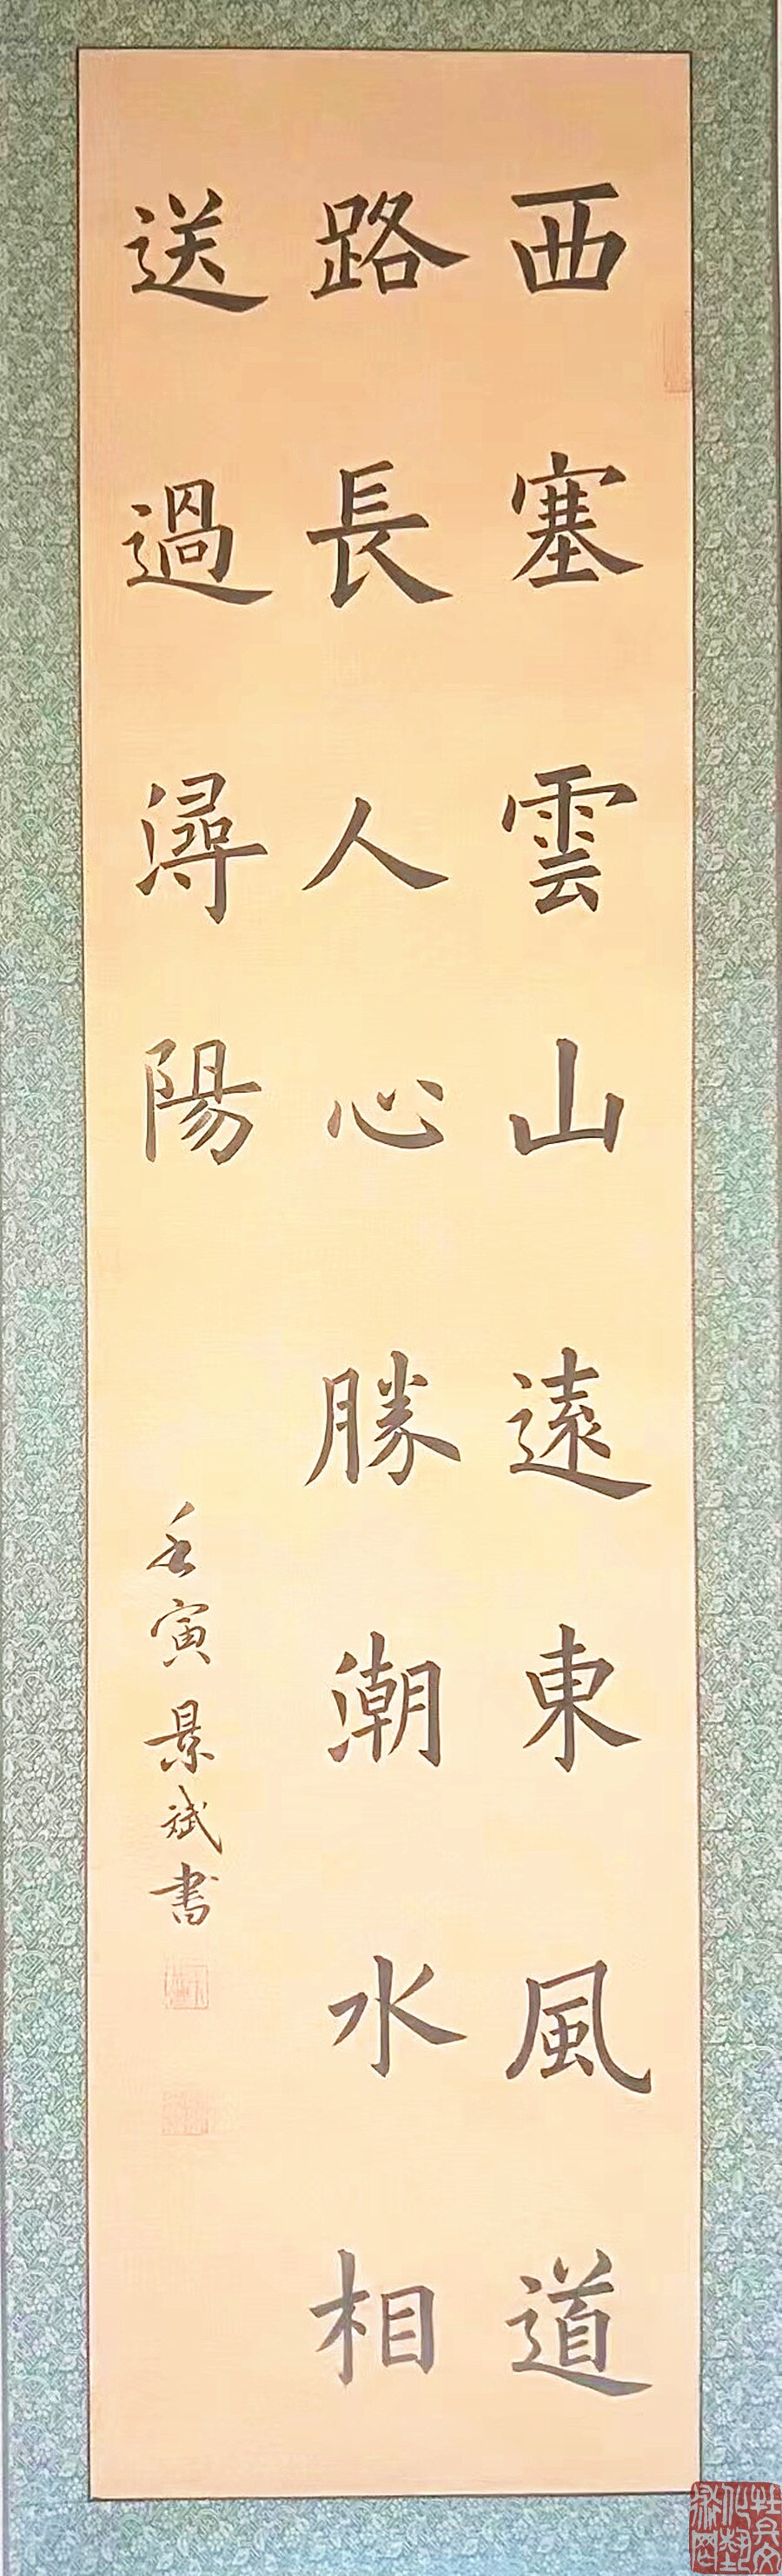 西塞雲山遠東風道
路長人心勝潮水相
送過潯陽
壬寅景斌書